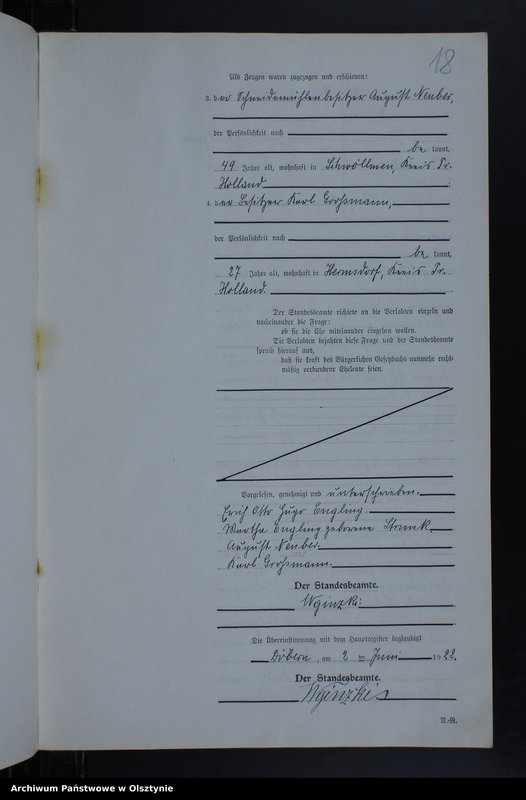 18
Als Zeugen waren zugezogen und erschienen:
3. der Schneidemühlenbesitzer August Neuber,
der Persönlichkeit nach
be kannt,
49 Jahre alt, wohnhaft in Schwöllmen, Kreis Pr.
Holland
4. der Besitzer Karl Großmann,
der Persönlichkeit nach
be kannt,
27 Jahre alt, wohnhaft in Hermsdorf, Kreis Pr.
Holland.
Der Standesbeamte richtete an die Verlobten einzeln und
nacheinander die Frage:
ob sie die Ehe miteinander eingehen wollen.
Die Verlobten bejahten diese Frage und der Standesbeamte
sprach hierauf aus,
daß sie kraft des Bürgerlichen Gesetzbuchs nunmehr recht-
mäßig verbundene Eheleute seien.
Vorgelesen, genehmigt und unterschrieben.
Erich Otto Hugo Engling.
Martha Engling geborene Strunk.
August Neuber.
Karl Großmann.
Der Standesbeamte.
Die Übereinstimmung mit dem Hauptregister beglaubigt
Döbern, am 2 ten Juni 1922.
Der Standesbeamte.
N.-N.
Archiwum Państwowe w Olsztynie